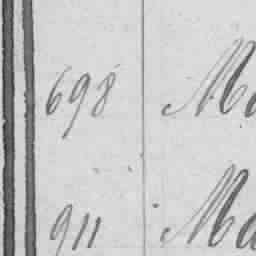 698 Ma
911 Ma